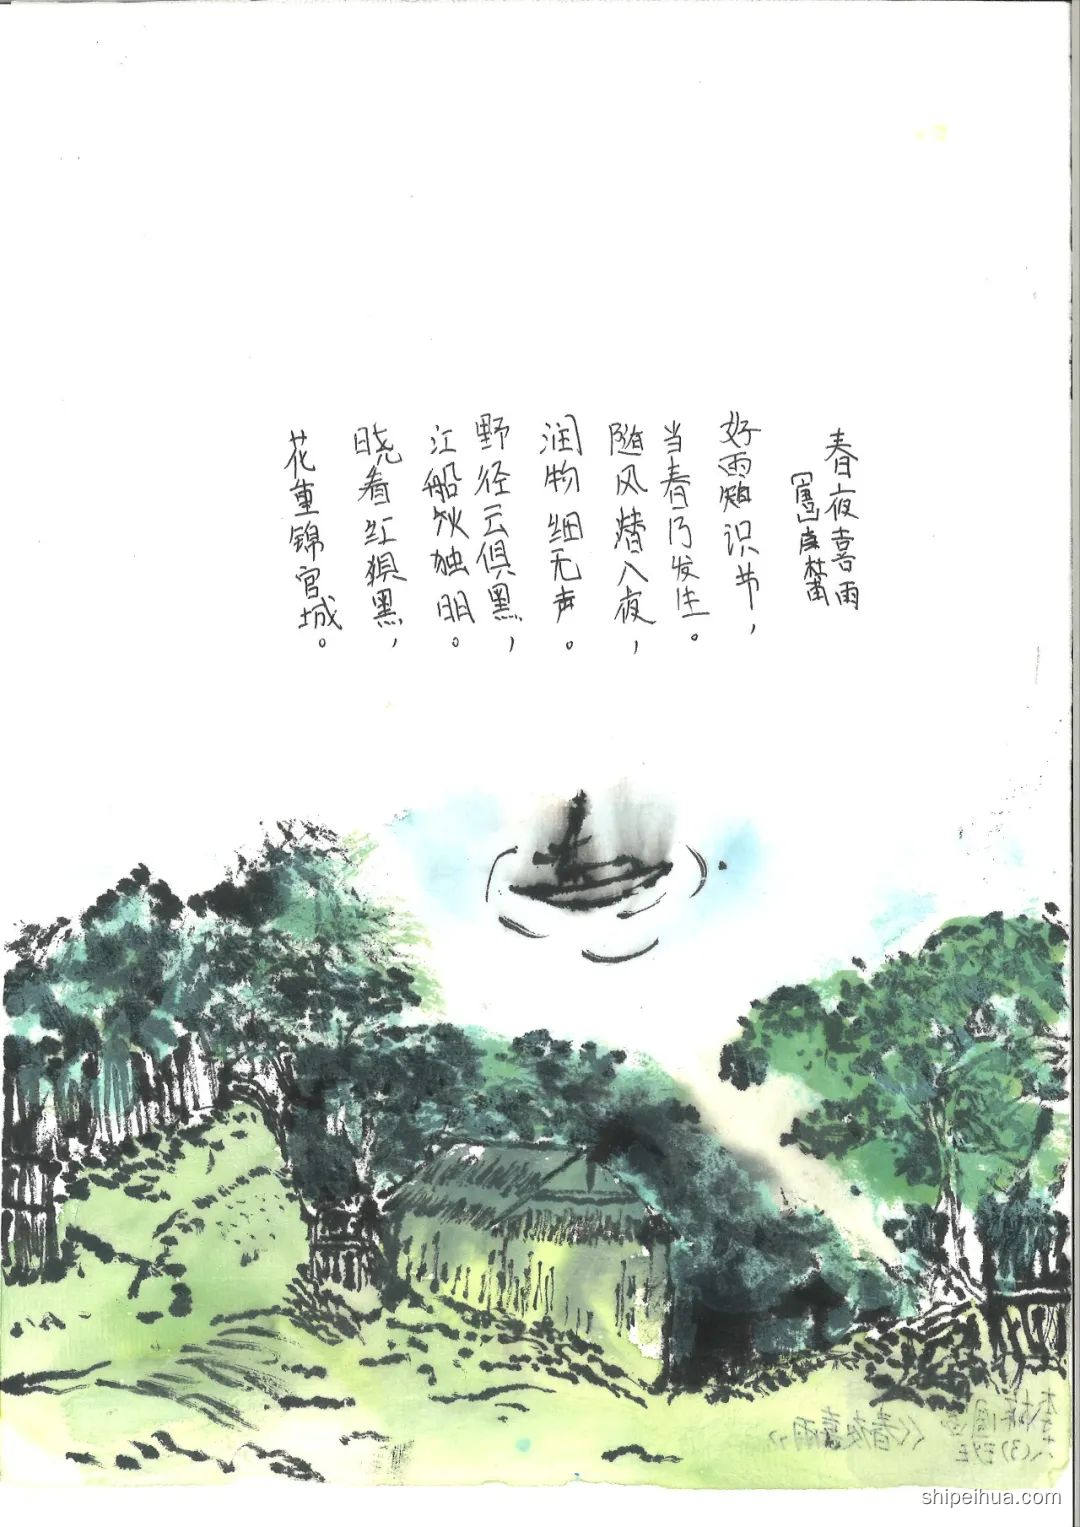 春夜喜雨
[唐]杜甫
好雨知识节，
当春乃发生。
随风潜入夜，
润物细无声。
野径云俱黑，
江船火独明。
晓看红俱黑，
花重锦官城。
《春夜喜雨》
六(3)班
shipeihua.com